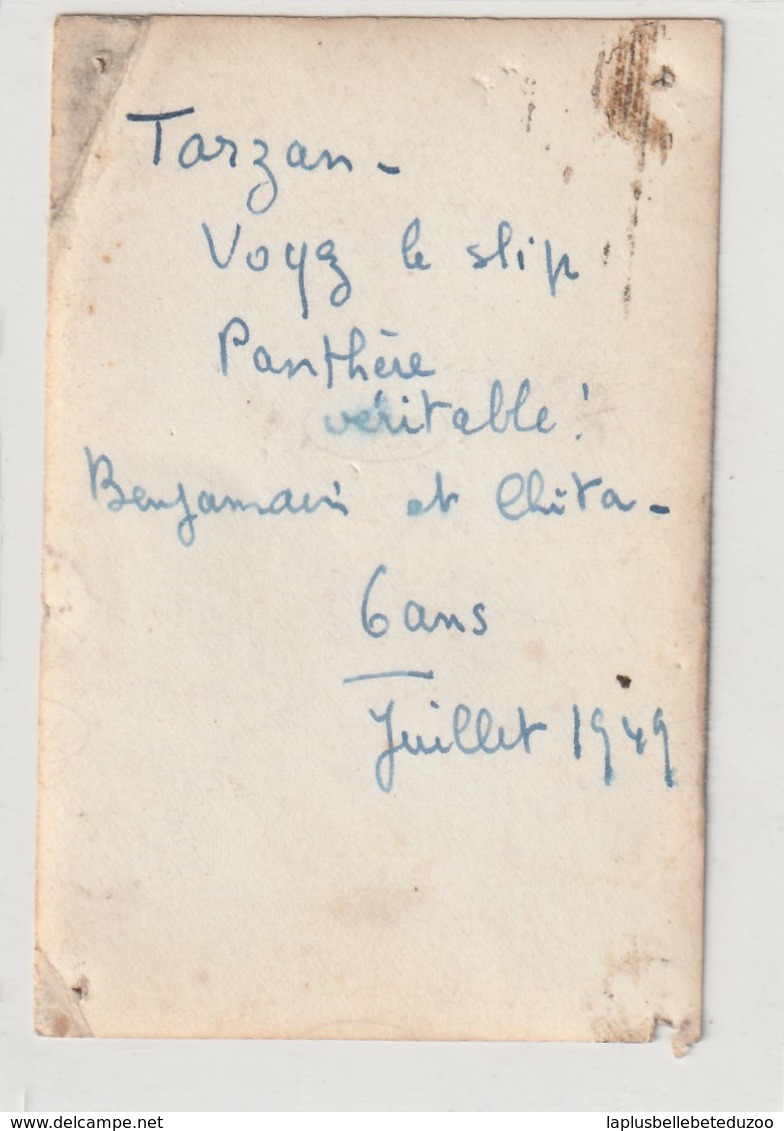 Tarzan -
Voyez le slip
Panthère
véritable !
Benjamin et Chita -
6 ans
Juillet 1949
laplusbellebeteduzoo